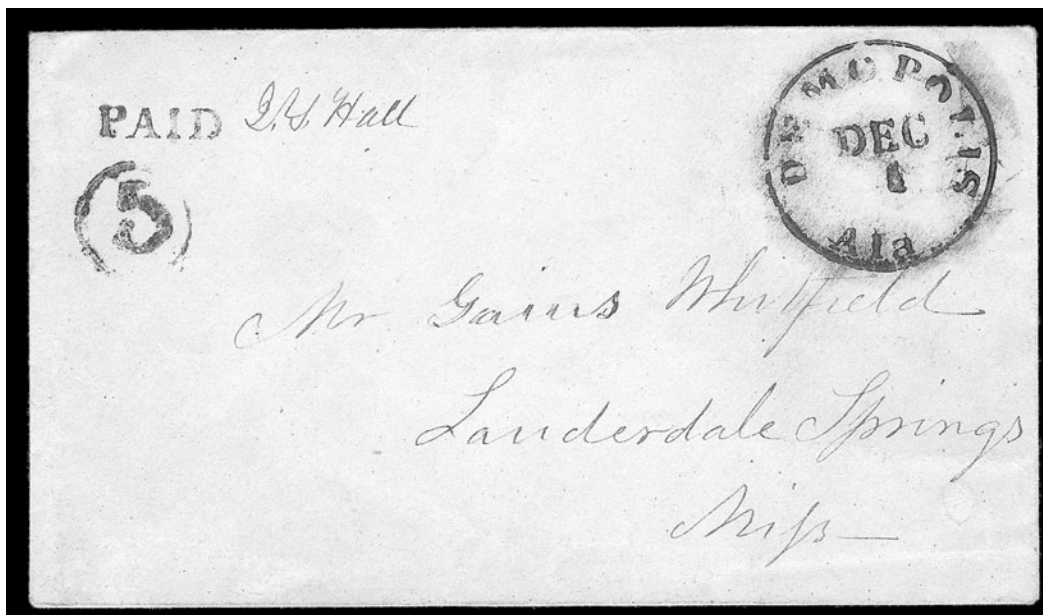 PAID J. S. Hall
5
DEMOPOLIS
DEC
1
Ala
Mr Gaius Whitfield
Lauderdale Springs
Miss